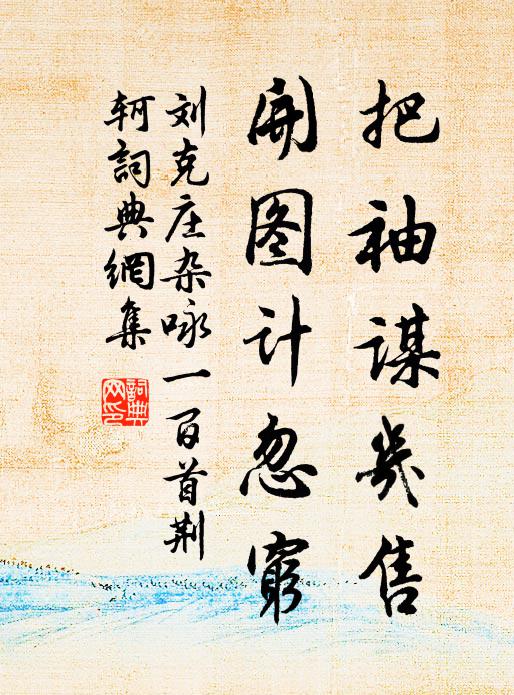 把袖谋几售
开图计忽穷
刘克庄杂咏一百首荆
轲詞典網集
詞典网印